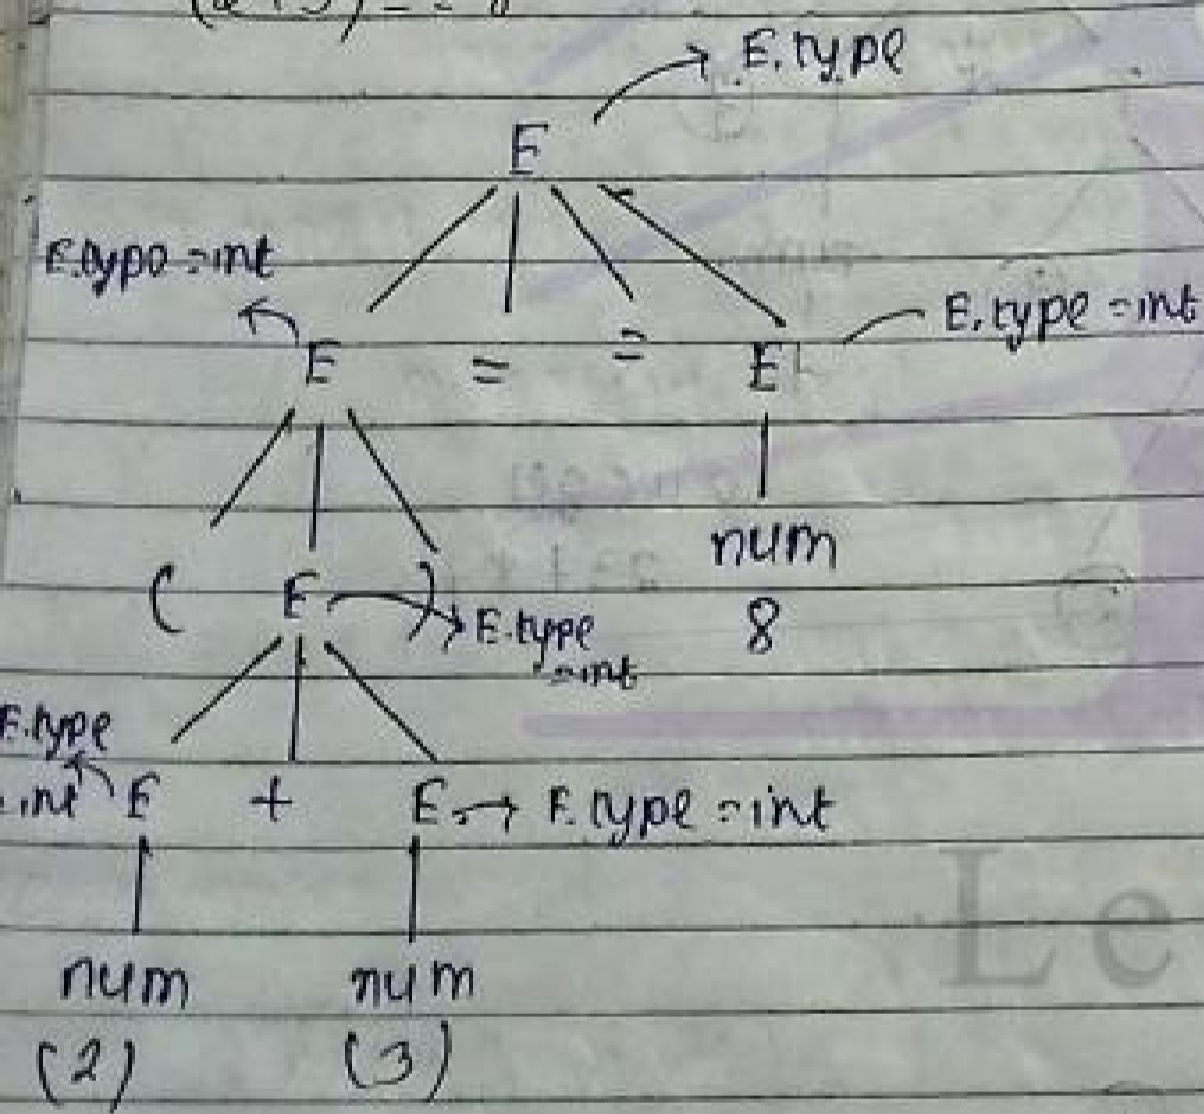 (2+3) == 8
E.type
E
E.type = int
E = = E
E.type = int
( E )
E.type
= int
num
8
E.type
= int
E + E
E.type = int
num num
(2) (3)
Le